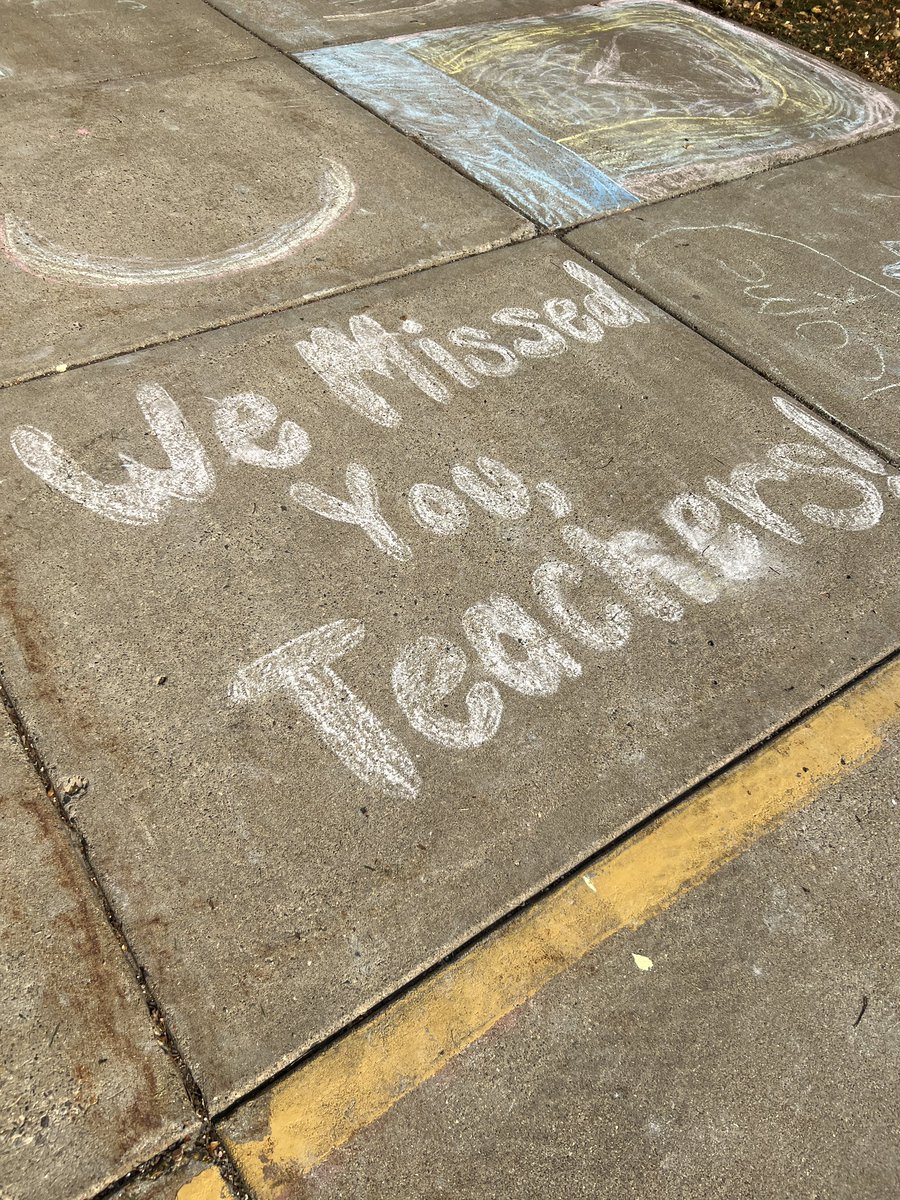 We Missed
You,
Teachers!